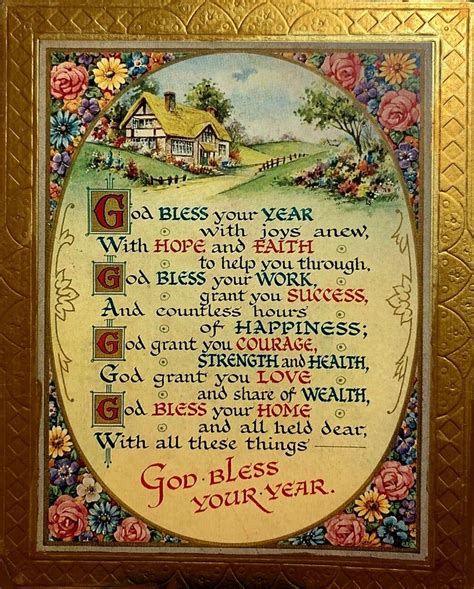 God BLESS your YEAR
with joys anew,
With HOPE and FAITH
to help you through,
God BLESS your WORK,
grant you SUCCESS,
And countless hours
of HAPPINESS;
God grant you COURAGE,
STRENGTH and HEALTH,
God grant you LOVE
and share of WEALTH,
God BLESS your HOME
and all held dear,
With all these things —
GOD·BLESS
YOUR·YEAR.